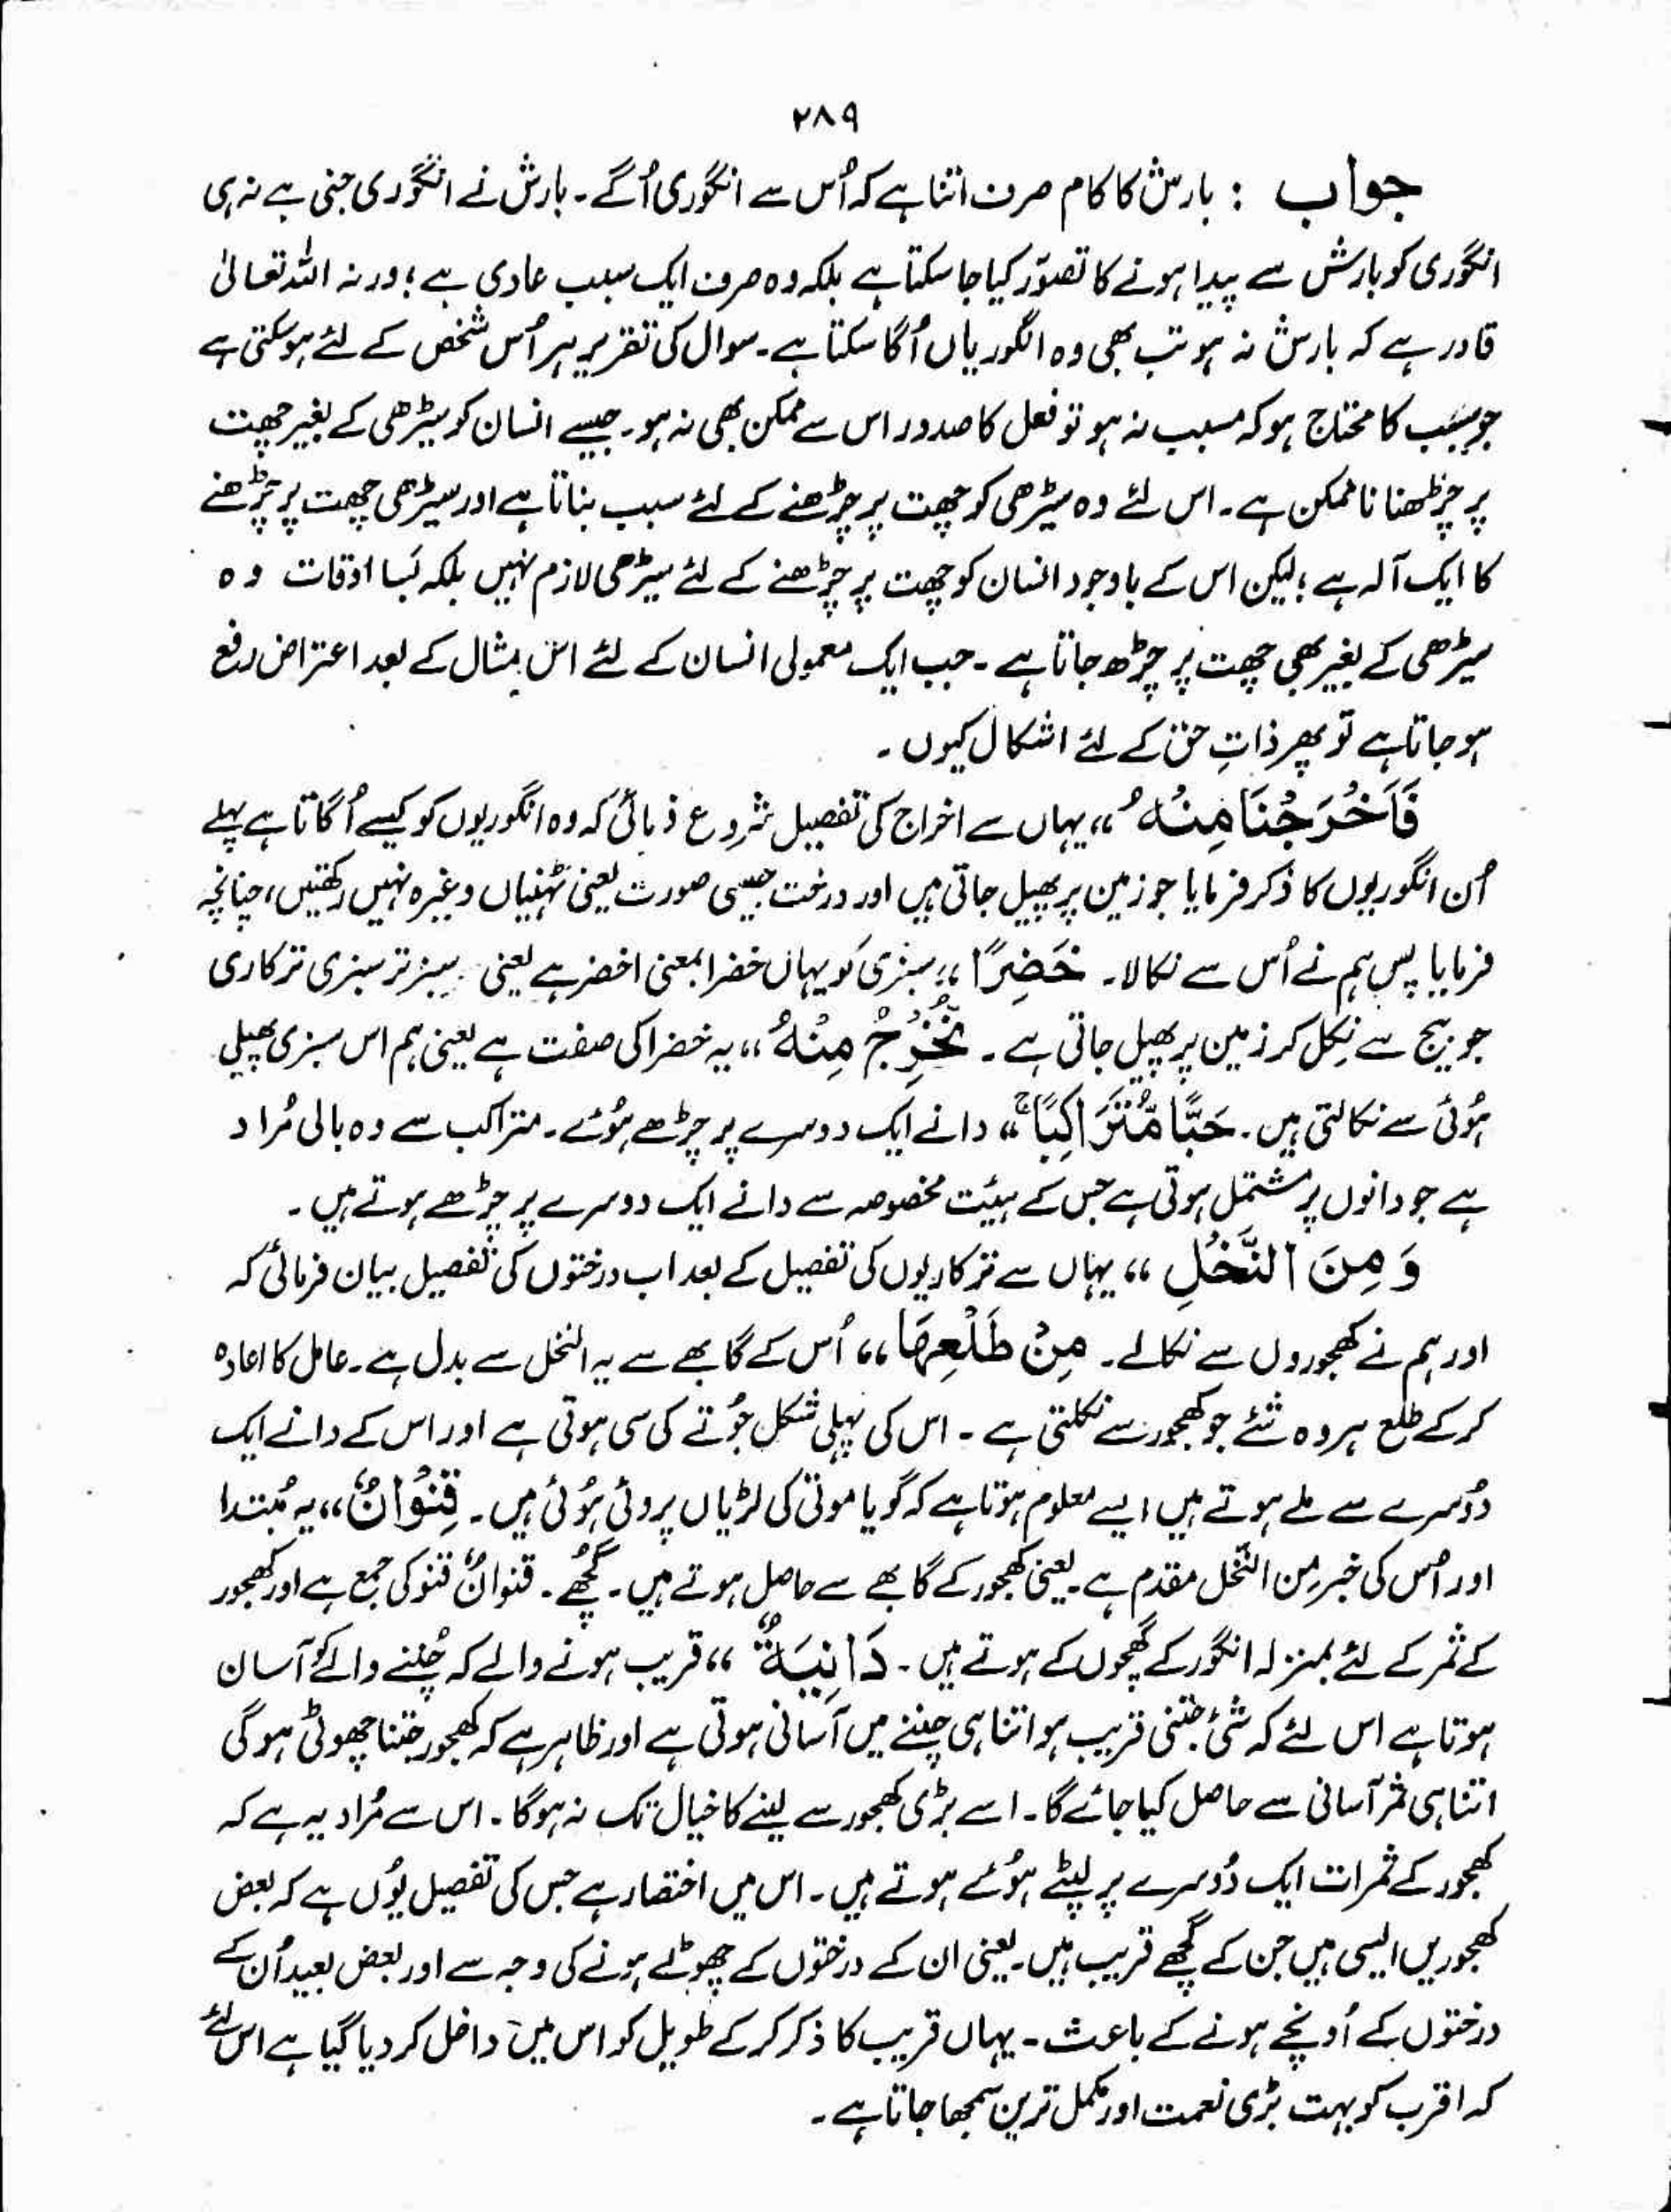 ۲۸۹
جواب : بارش کا کام صرف اتنا ہے کہ اُس سے انگوری اُگے۔ بارش نے انگوری جنی ہے نہ ہی
انگوری کو بارش سے پیدا ہونے کا تصوّر کیا جا سکتا ہے بلکہ وہ صرف ایک سبب عادی ہے؛ ورنہ اللہ تعالیٰ
قادر ہے کہ بارش نہ ہو تب بھی وہ انگوریاں اُگا سکتا ہے۔ سوال کی تقریر ہر اُس شخص کے لئے ہو سکتی ہے
جو سَبب کا محتاج ہو کہ سبب نہ ہو تو فعل کا صدور اس سے ممکن بھی نہ ہو۔ جیسے انسان کو سیڑھی کے بغیر چھت
پر چڑھنا نا ممکن ہے۔ اس لئے وہ سیڑھی کو چھت پر چڑھنے کے لئے سبب بناتا ہے اور سیڑھی چھت پر چڑھنے
کا ایک آلہ ہے؛ لیکن اس کے باوجود انسان کو چھت پر چڑھنے کے لئے سیڑھی لازم نہیں بلکہ بَسا اوقات وہ
سیڑھی کے بغیر بھی چھت پر چڑھ جاتا ہے۔ جب ایک معمولی انسان کے لئے اس مثال کے بعد اعتراض رفع
ہو جاتا ہے تو پھر ذاتِ حق کے لئے اشکال کیوں۔
فَاَخْرَجْنَا مِنْهُ ،، یہاں سے اخراج کی تفصیل شروع فرمائی کہ وہ انگوریوں کو کیسے اُگاتا ہے پہلے
اُن انگوریوں کا ذکر فرمایا جو زمین پر پھیل جاتی ہیں اور درخت جیسی صورت یعنی ٹہنیاں وغیرہ نہیں رکھتیں، چنانچہ
فرمایا پس ہم نے اُس سے نکالا۔ خَضِرًا ،، سبزی کو یہاں خضرا بمعنی اخضر ہے یعنی سبز تر سبزی ترکاری
جو بیج سے نِکل کر زمین پر پھیل جاتی ہے۔ نُّخْرِجُ مِنْهُ ،، یہ خضرا کی صفت ہے یعنی ہم اس سبزی پھیلی
ہُوئی سے نکالتی ہیں۔ حَبًّا مُّتَرَاكِبًا ج ،، دانے ایک دوسرے پر چڑھے ہُوئے۔ متراکب سے وہ بالی مُراد
ہے جو دانوں پر مشتمل ہوتی ہے جس کے ہیئت مخصوصہ سے دانے ایک دوسرے پر چڑھے ہوتے ہیں۔
وَ مِنَ النَّخْلِ ،، یہاں سے ترکاریوں کی تفصیل کے بعد اب درختوں کی تفصیل بیان فرمائی کہ
اور ہم نے کھجوروں سے نکالے۔ مِنْ طَلْعِهَا ،، اُس کے گابھے سے یہ النخل سے بدل ہے۔ عامل کا اعادہ
کر کے طلع ہر وہ شئے جو کھجور سے نکلتی ہے۔ اس کی پہلی شکل جُوتے کی سی ہوتی ہے اور اس کے دانے ایک
دُوسرے سے ملے ہوتے ہیں ایسے معلوم ہوتا ہے کہ گویا موتی کی لڑیاں پروئی ہُوئی ہیں۔ قِنْوَانٌ ،، یہ مُبتدا
اور اُس کی خبر مِن النّخل مقدم ہے۔ یعنی کھجور کے گابھے سے حاصل ہوتے ہیں۔ گُچھے۔ قنوانٌ قنو کی جمع ہے اور کھجور
کے ثمر کے لئے بمنزلہ انگور کے گچھوں کے ہوتے ہیں۔ دَانِيَةٌ ،، قریب ہونے والے کہ چُننے والے کو آسان
ہوتا ہے اس لئے کہ شیٔ جتنی قریب ہو اتنا ہی چننے میں آسانی ہوتی ہے اور ظاہر ہے کہ کھجور جتنا چھوٹی ہو گی
اتنا ہی ثمر آسانی سے حاصل کیا جائے گا۔ اسے بڑی کھجور سے لینے کا خیال تک نہ ہوگا۔ اس سے مُراد یہ ہے کہ
کھجور کے ثمرات ایک دُوسرے پر لپٹے ہُوئے ہوتے ہیں۔ اس میں اختصار ہے جس کی تفصیل یُوں ہے کہ بعض
کھجوریں ایسی ہیں جن کے گچھے قریب ہیں۔ یعنی ان کے درختوں کے چھوٹے ہونے کی وجہ سے اور بعض بعید اُن کے
درختوں کے اُونچے ہونے کے باعث۔ یہاں قریب کا ذکر کر کے طویل کو اس میں داخل کر دیا گیا ہے اس لئے
کہ اقرب کو بہت بڑی نعمت اور مکمل ترین سمجھا جاتا ہے۔